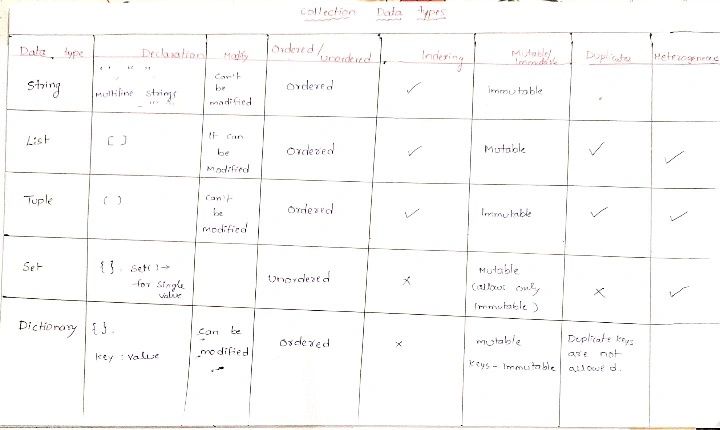 Collection Data types
Data type Declaration Modify Ordered/ Unordered Indexing Mutable/ Immutable Duplicates Heterogeneous
String
' ' " "
Multiline strings
""" """
can't
be
modified
Ordered
✓
Immutable
List
[ ]
It can
be
Modified
Ordered
✓
Mutable
✓
✓
Tuple
( )
can't
be
modified
Ordered
✓
Immutable
✓
✓
Set
{ }. Set( ) →
for single
value
Unordered
×
Mutable
(allows only
Immutable)
×
✓
Dictionary
{ }.
key : value
can be
modified
Ordered
×
mutable
keys - Immutable
Duplicate keys
are not
allowed.